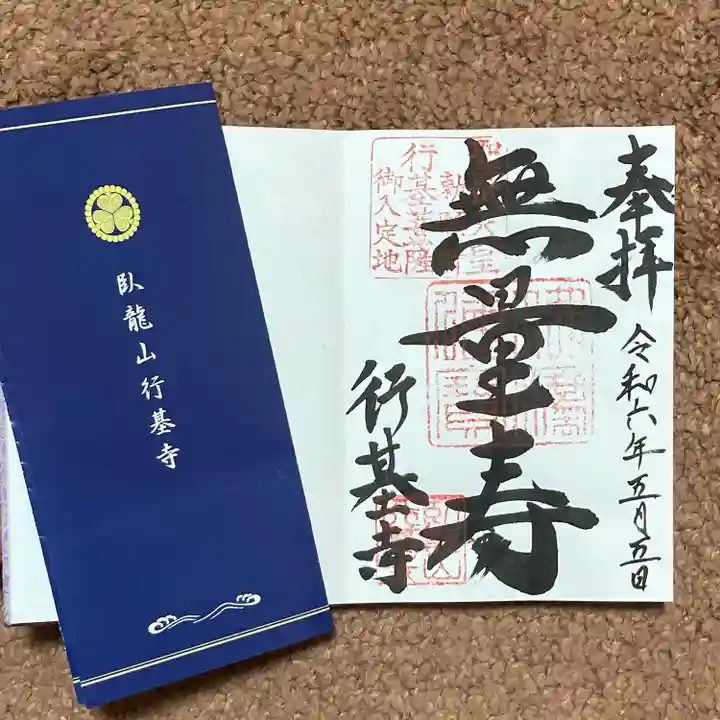 臥龍山行基寺
奉拝
令和六年五月五日
無量寿
行基寺
行基菩薩
御入定地